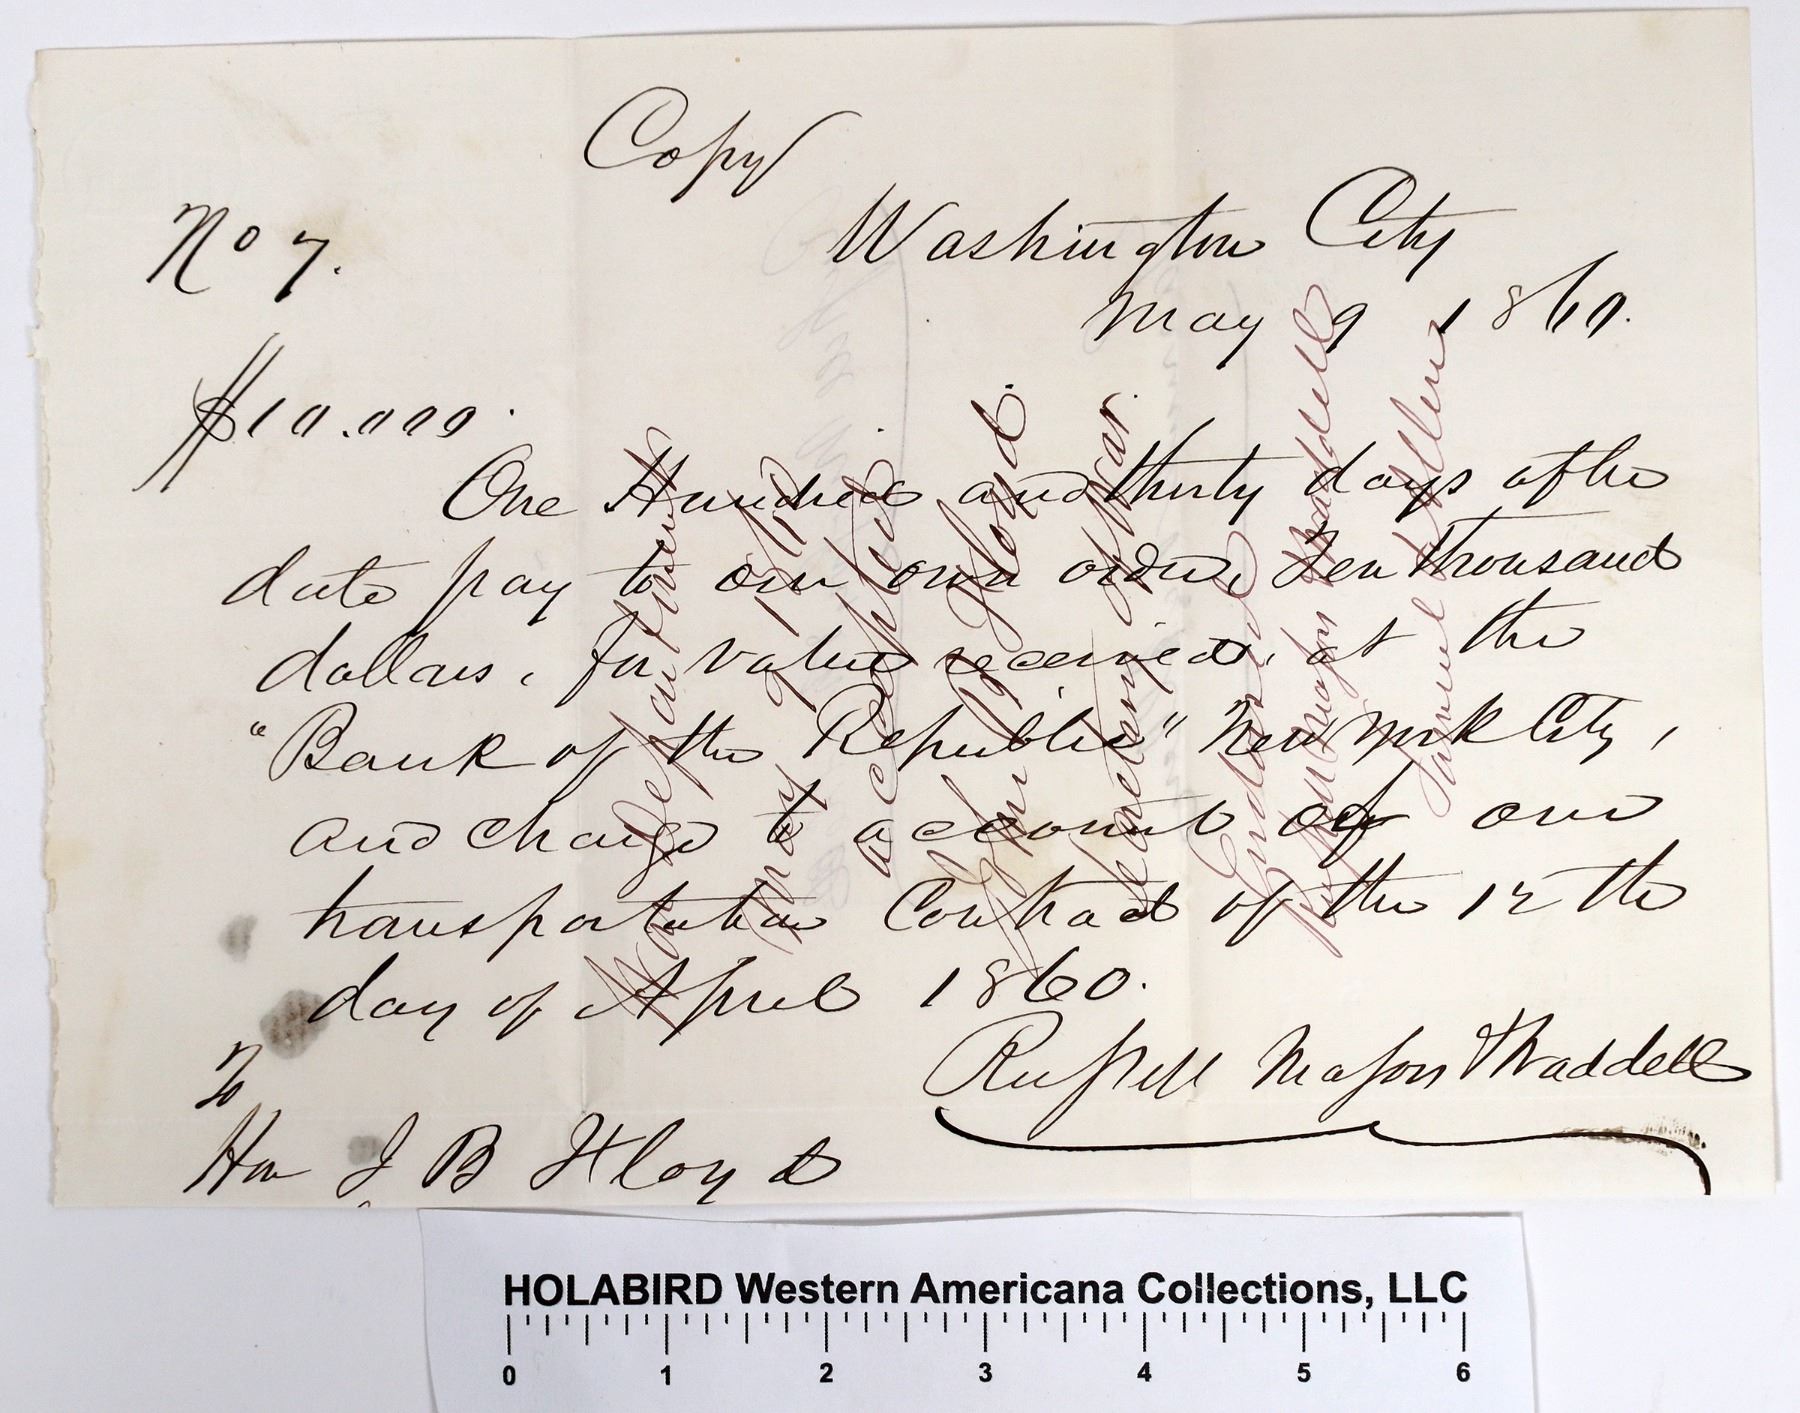 Copy
No 7.
Washington City
May 9 1860.
$10.000.
One Hundred and thirty days after
date pay to our own order, Ten Thousand
dollars, for value received, at the
"Bank of the Republic" New York City,
and charge to account of our
transportation Contract of the 12th
day of April 1860.
Russell Majors & Waddell
To
Hon J B Floyd
War Department
May 9 1860
accepted
John B Floyd
Secretary of War.
Endorsed
Russell Majors & Waddell
Samuel
HOLABIRD Western Americana Collections, LLC
0 1 2 3 4 5 6